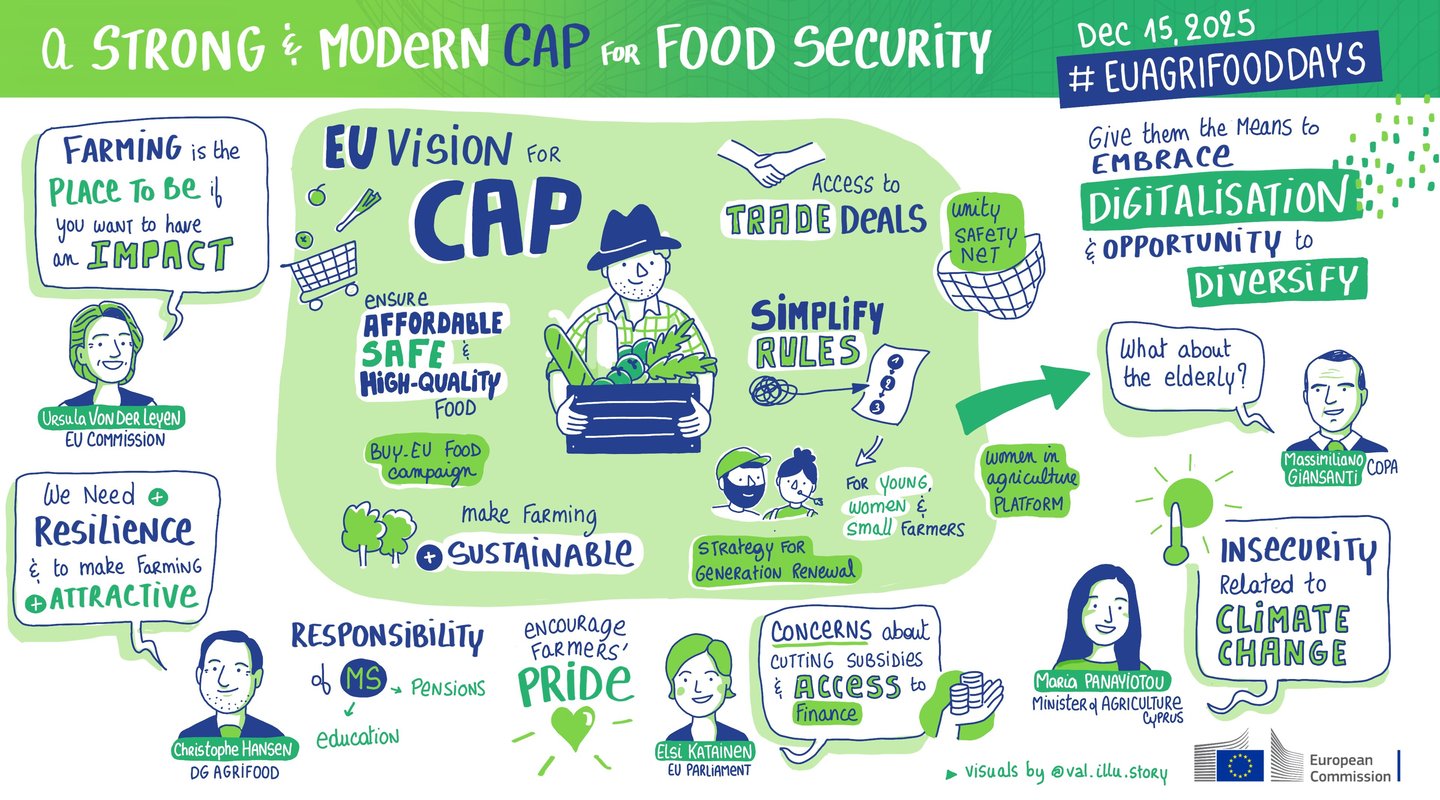 a STRONG & MODERN CAP FOR FOOD SECURITY
Dec 15, 2025
# EUAGRIFOODDAYS
FARMING is the
PLACE TO BE if
you want to have
an IMPACT
Ursula Von Der Leyen
EU COMMISSION
We Need +
Resilience
& to make Farming
+ ATTRACTIVE
Christophe HANSEN
DG AGRIFOOD
EU VISION FOR
CAP
ensure
AFFORDABLE
SAFE &
HIGH-QUALITY
FOOD
BUY-EU FOOD
campaign
make Farming
+ SUSTAINABLE
Access to
TRADE DEALS
unity
SAFETY
NET
SIMPLIFY
RULES
1
2
3
FOR YOUNG,
women &
small Farmers
STRATEGY FOR
Generation Renewal
women in
agriculture
PLATFORM
Give them the Means to
EMBRACE
DIGITALISATION
& OPPORTUNITY to
DIVERSIFY
What about
the elderly?
Massimiliano
GIANSANTI
COPA
INSECURITY
Related to
CLIMATE
CHANGE
Maria PANAYIOTOU
Minister of AGRICULTURE
CYPRUS
RESPONSIBILITY
of MS
Pensions
education
encourage
Farmers'
PRIDE
Elsi KATAINEN
EU PARLIAMENT
CONCERNS about
CUTTING SUBSIDIES
& ACCESS to
Finance
visuals by @val.illu.story
European
Commission